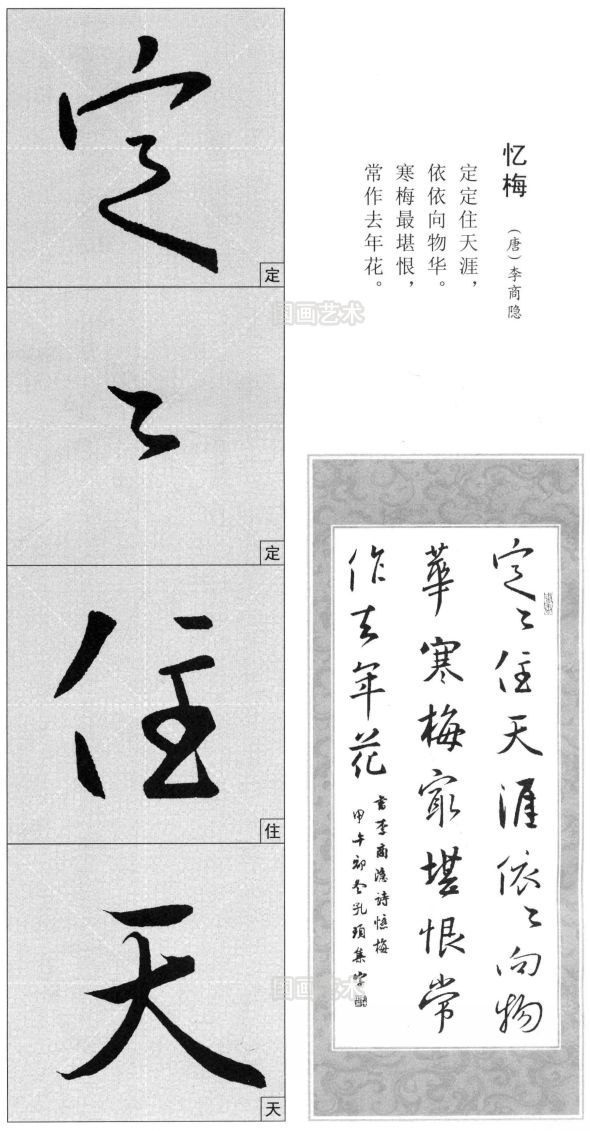 忆梅
（唐）李商隐
定定住天涯，
依依向物华。
寒梅最堪恨，
常作去年花。
定
定
々
定
住
住
天
天
定々住天涯依々向物
華寒梅最堪恨常
作去年花
書李商隐诗憶梅
甲午初冬孔頊集字
国画艺术
国画艺术